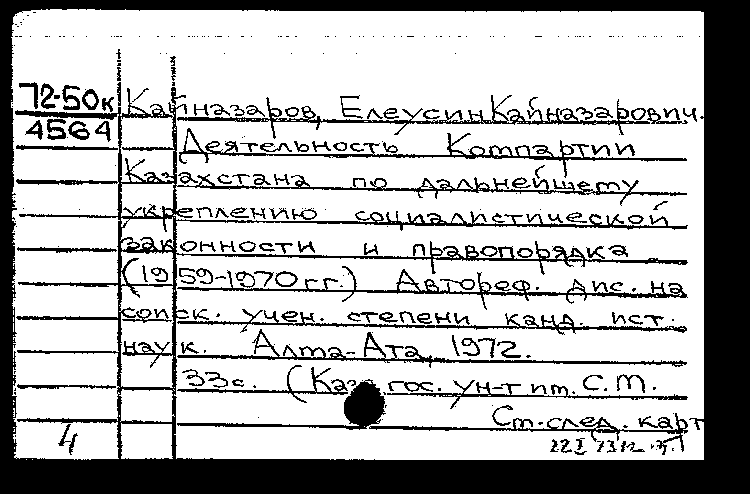 72-50к
4564
Кайназаров, Елеусин Кайназарович.
Деятельность Компартии
Казахстана по дальнейшему
укреплению социалистической
законности и правопорядка
(1959-1970гг.) Автореф. дис. на
соиск. учен. степени канд. ист.
наук. Алма-Ата, 1972.
33с. (Каз. гос. ун-т им. С.М.
См. след. карт
4